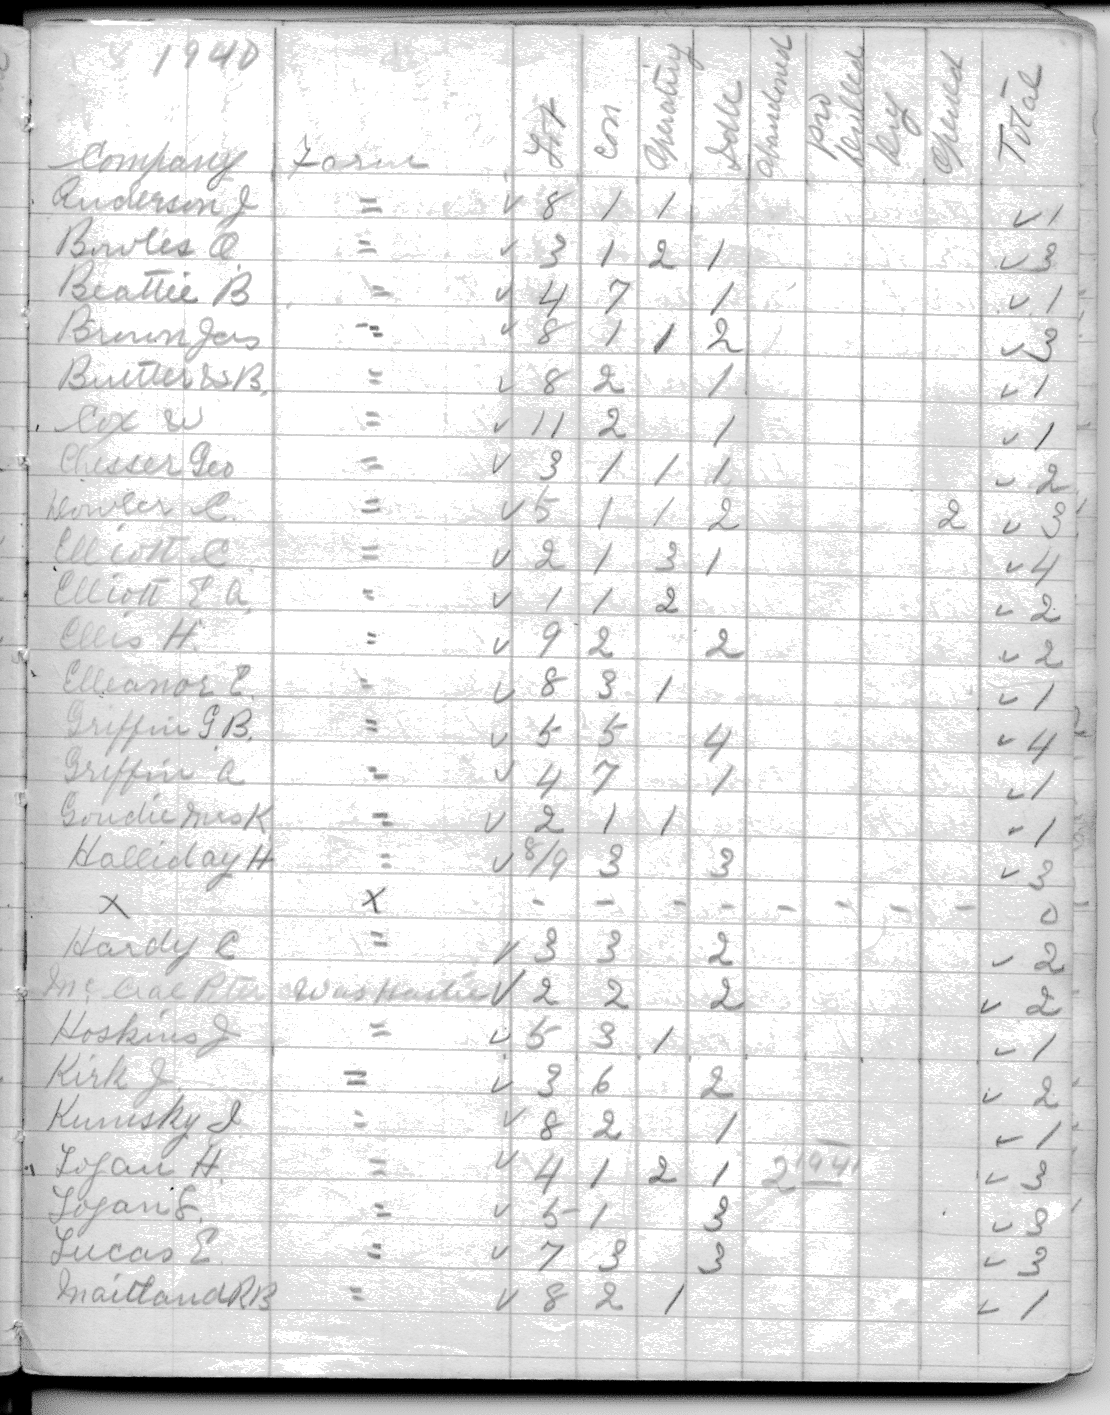 1940
Company Farm Lot Con Operating Idle Abandoned Pro Drilled Dry Opened Total
Anderson J = ✓ 8 1 1 ✓ 1
Bowles O. = ✓ 3 1 2 1 ✓ 3
Beattie B = ✓ 4 7 1 ✓ 1
Brown Jas = ✓ 8 1 1 2 ✓ 3
Buttler W B. = ✓ 8 2 1 ✓ 1
Cox W = ✓ 11 2 1 ✓ 1
Chesser Geo = ✓ 3 1 1 1 ✓ 2
Dowler C. = ✓ 5 1 1 2 2 ✓ 3
Elliott C = ✓ 2 1 3 1 ✓ 4
Elliott E A. = ✓ 1 1 2 ✓ 2
Ellis H. = ✓ 9 2 2 ✓ 2
Elleanor E. = ✓ 8 3 1 ✓ 1
Griffin G B. = ✓ 5 5 4 ✓ 4
Griffin A = ✓ 4 7 1 ✓ 1
Goudie Mrs K = ✓ 2 1 1 ✓ 1
Halliday H = ✓ 8/9 3 3 ✓ 3
X X - - - - - - - - 0
Hardy C = ✓ 3 3 2 ✓ 2
Mc Peter Was ✓ 2 2 2 ✓ 2
Hoskins J = ✓ 5 3 1 ✓ 1
Kirk J. = ✓ 3 6 2 ✓ 2
Kunisky J. = ✓ 8 2 1 ✓ 1
Logan H. = ✓ 4 1 2 1 2 1941 ✓ 3
Logan E. = ✓ 5 1 3 ✓ 3
Lucas E. = ✓ 7 3 3 ✓ 3
Maitland R B = ✓ 8 2 1 ✓ 1